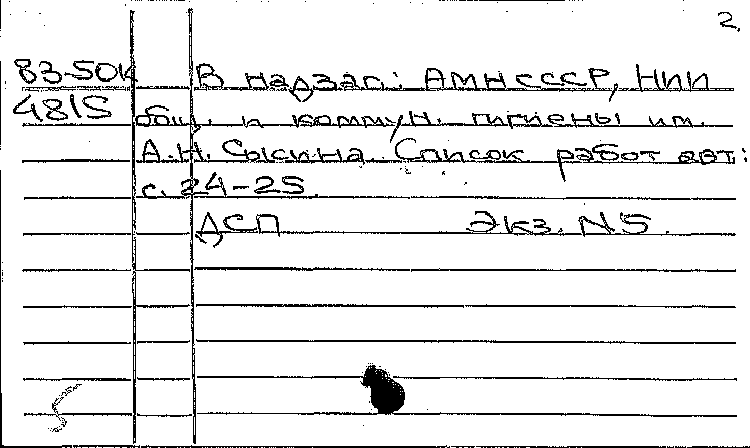 2.
83-50к В надзаг.: АМН СССР, НИИ
4815 общ. и коммун. гигиены им.
А.Н. Сысина. Список работ авт.:
с. 24-25.
ДСП Экз. N5.
5